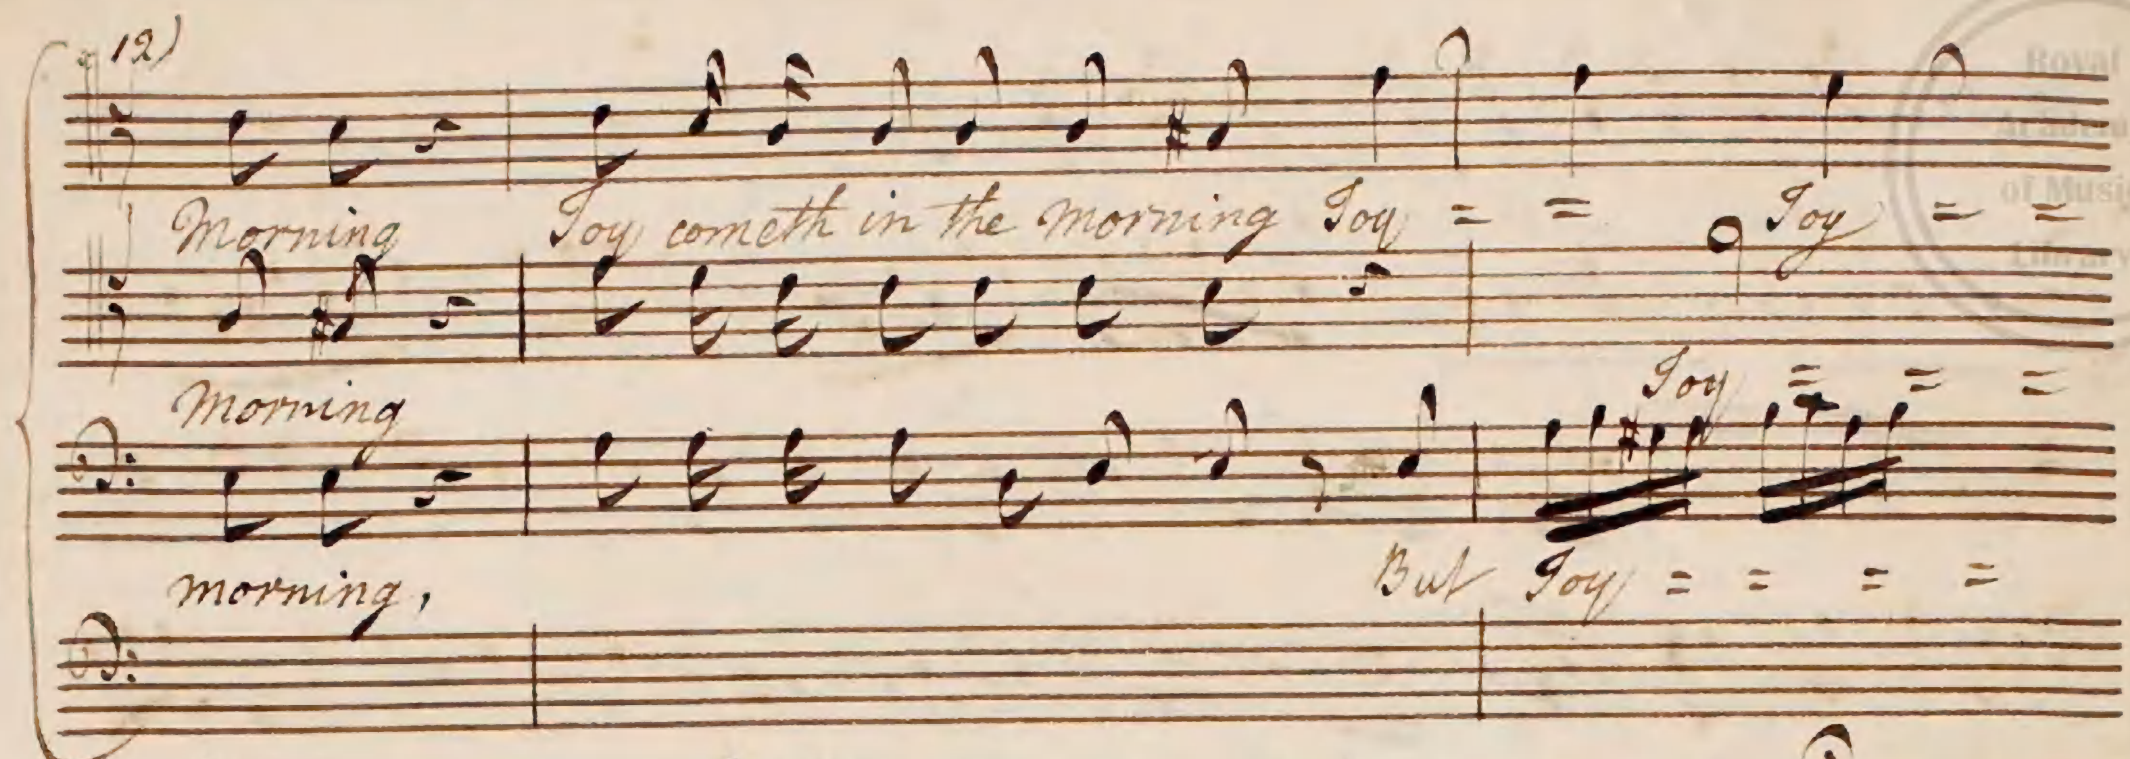 12)
Morning Joy cometh in the morning Joy = = Joy = =
Morning Joy = = =
morning, But Joy = = = =
Royal
Academy
of Music
Library